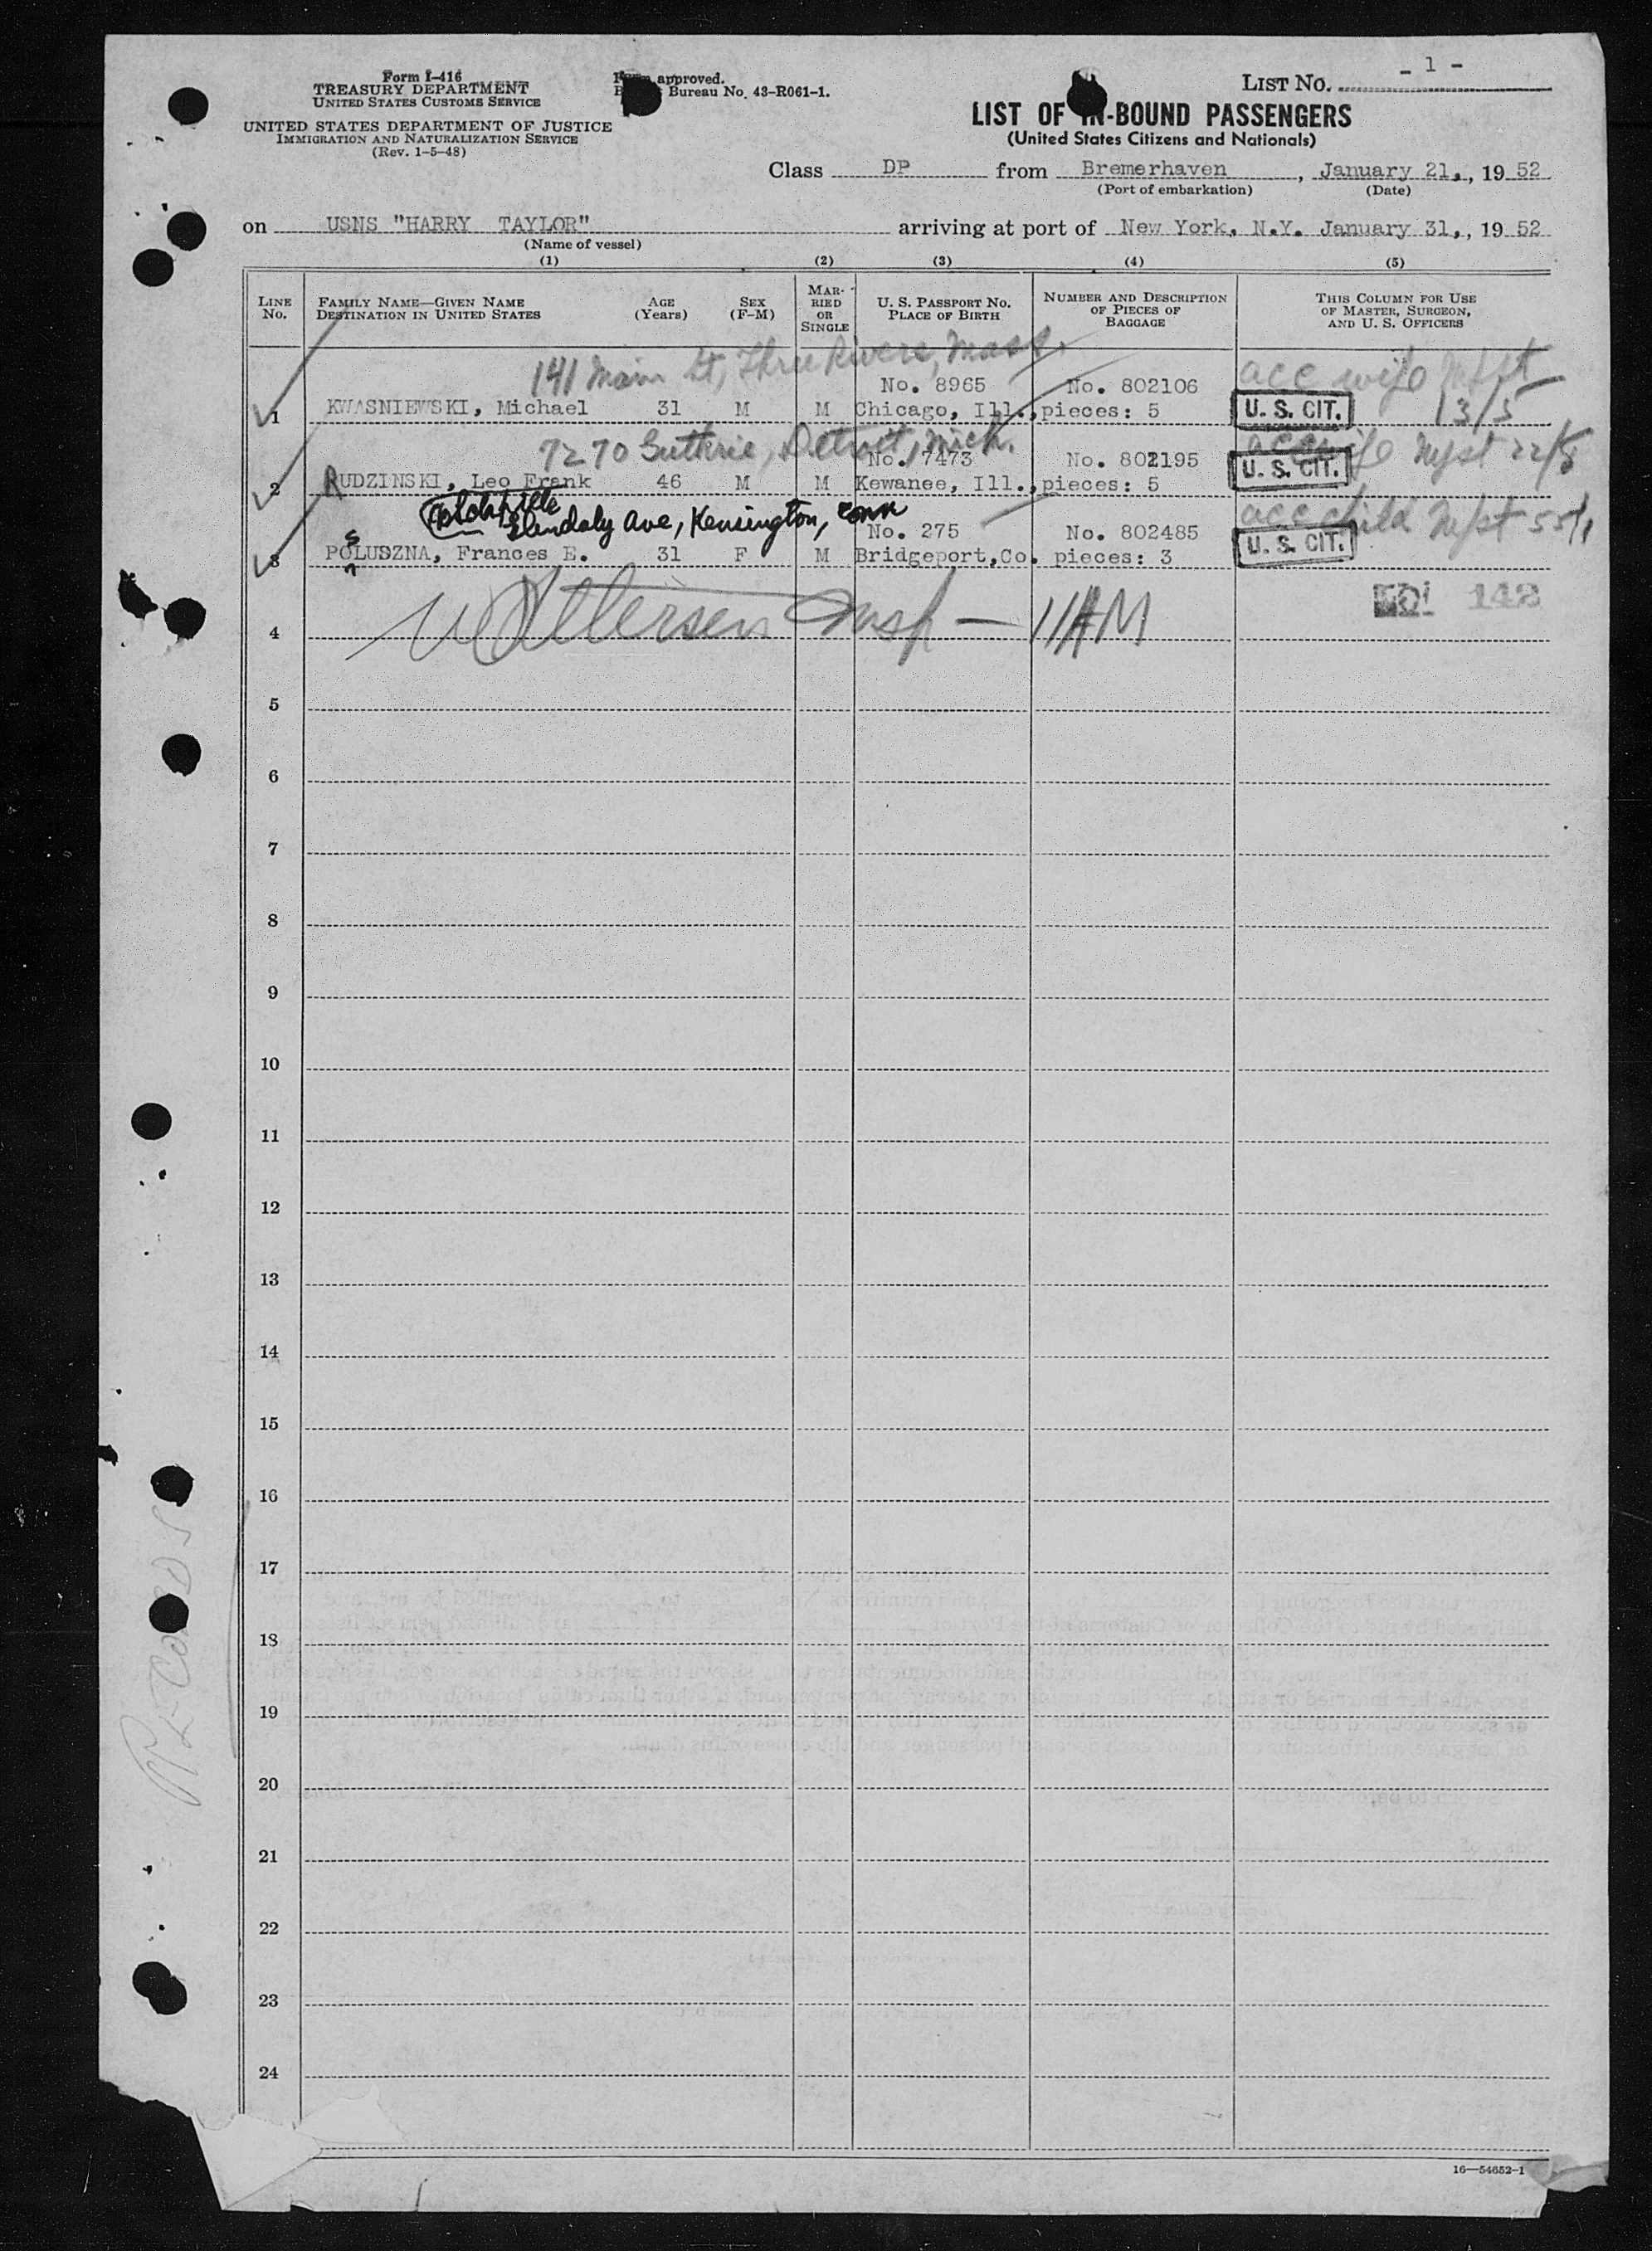 Form I-416
TREASURY DEPARTMENT
UNITED STATES CUSTOMS SERVICE
UNITED STATES DEPARTMENT OF JUSTICE
IMMIGRATION AND NATURALIZATION SERVICE
(Rev. 1-5-48)
approved.
Bureau No. 43-R061-1.
LIST NO. - 1 -
LIST OF IN-BOUND PASSENGERS
(United States Citizens and Nationals)
Class DP from Bremerhaven, January 21,, 1952
(Port of embarkation) (Date)
on USNS "HARRY TAYLOR" arriving at port of New York, N.Y. January 31,, 1952
(Name of vessel)
(1) (2) (3) (4) (5)
LINE NO. FAMILY NAME—GIVEN NAME DESTINATION IN UNITED STATES AGE (Years) SEX (F-M) MARRIED OR SINGLE U. S. PASSPORT NO. PLACE OF BIRTH NUMBER AND DESCRIPTION OF PIECES OF BAGGAGE THIS COLUMN FOR USE OF MASTER, SURGEON, AND U. S. OFFICERS
141 Main St, Three Rivers, Mass. acc wife
No. 8965 No. 802106
1 KWASNIEWSKI, Michael 31 M M Chicago, Ill., pieces: 5 U. S. CIT. 13/5
7270 Guthrie, Detroit, Mich.
No. 7473 No. 802195 acc wife 22/8
2 RUDZINSKI, Leo Frank 46 M M Kewanee, Ill., pieces: 5 U. S. CIT.
Ave, Kensington, Conn acc child
No. 275 No. 802485
3 POsLUSZNA, Frances E. 31 F M Bridgeport, Co. pieces: 3 U. S. CIT.
142
4 Insp — 11AM
5
6
7
8
9
10
11
12
13
14
15
16
17
18
19
20
21
22
23
24
16—54652-1